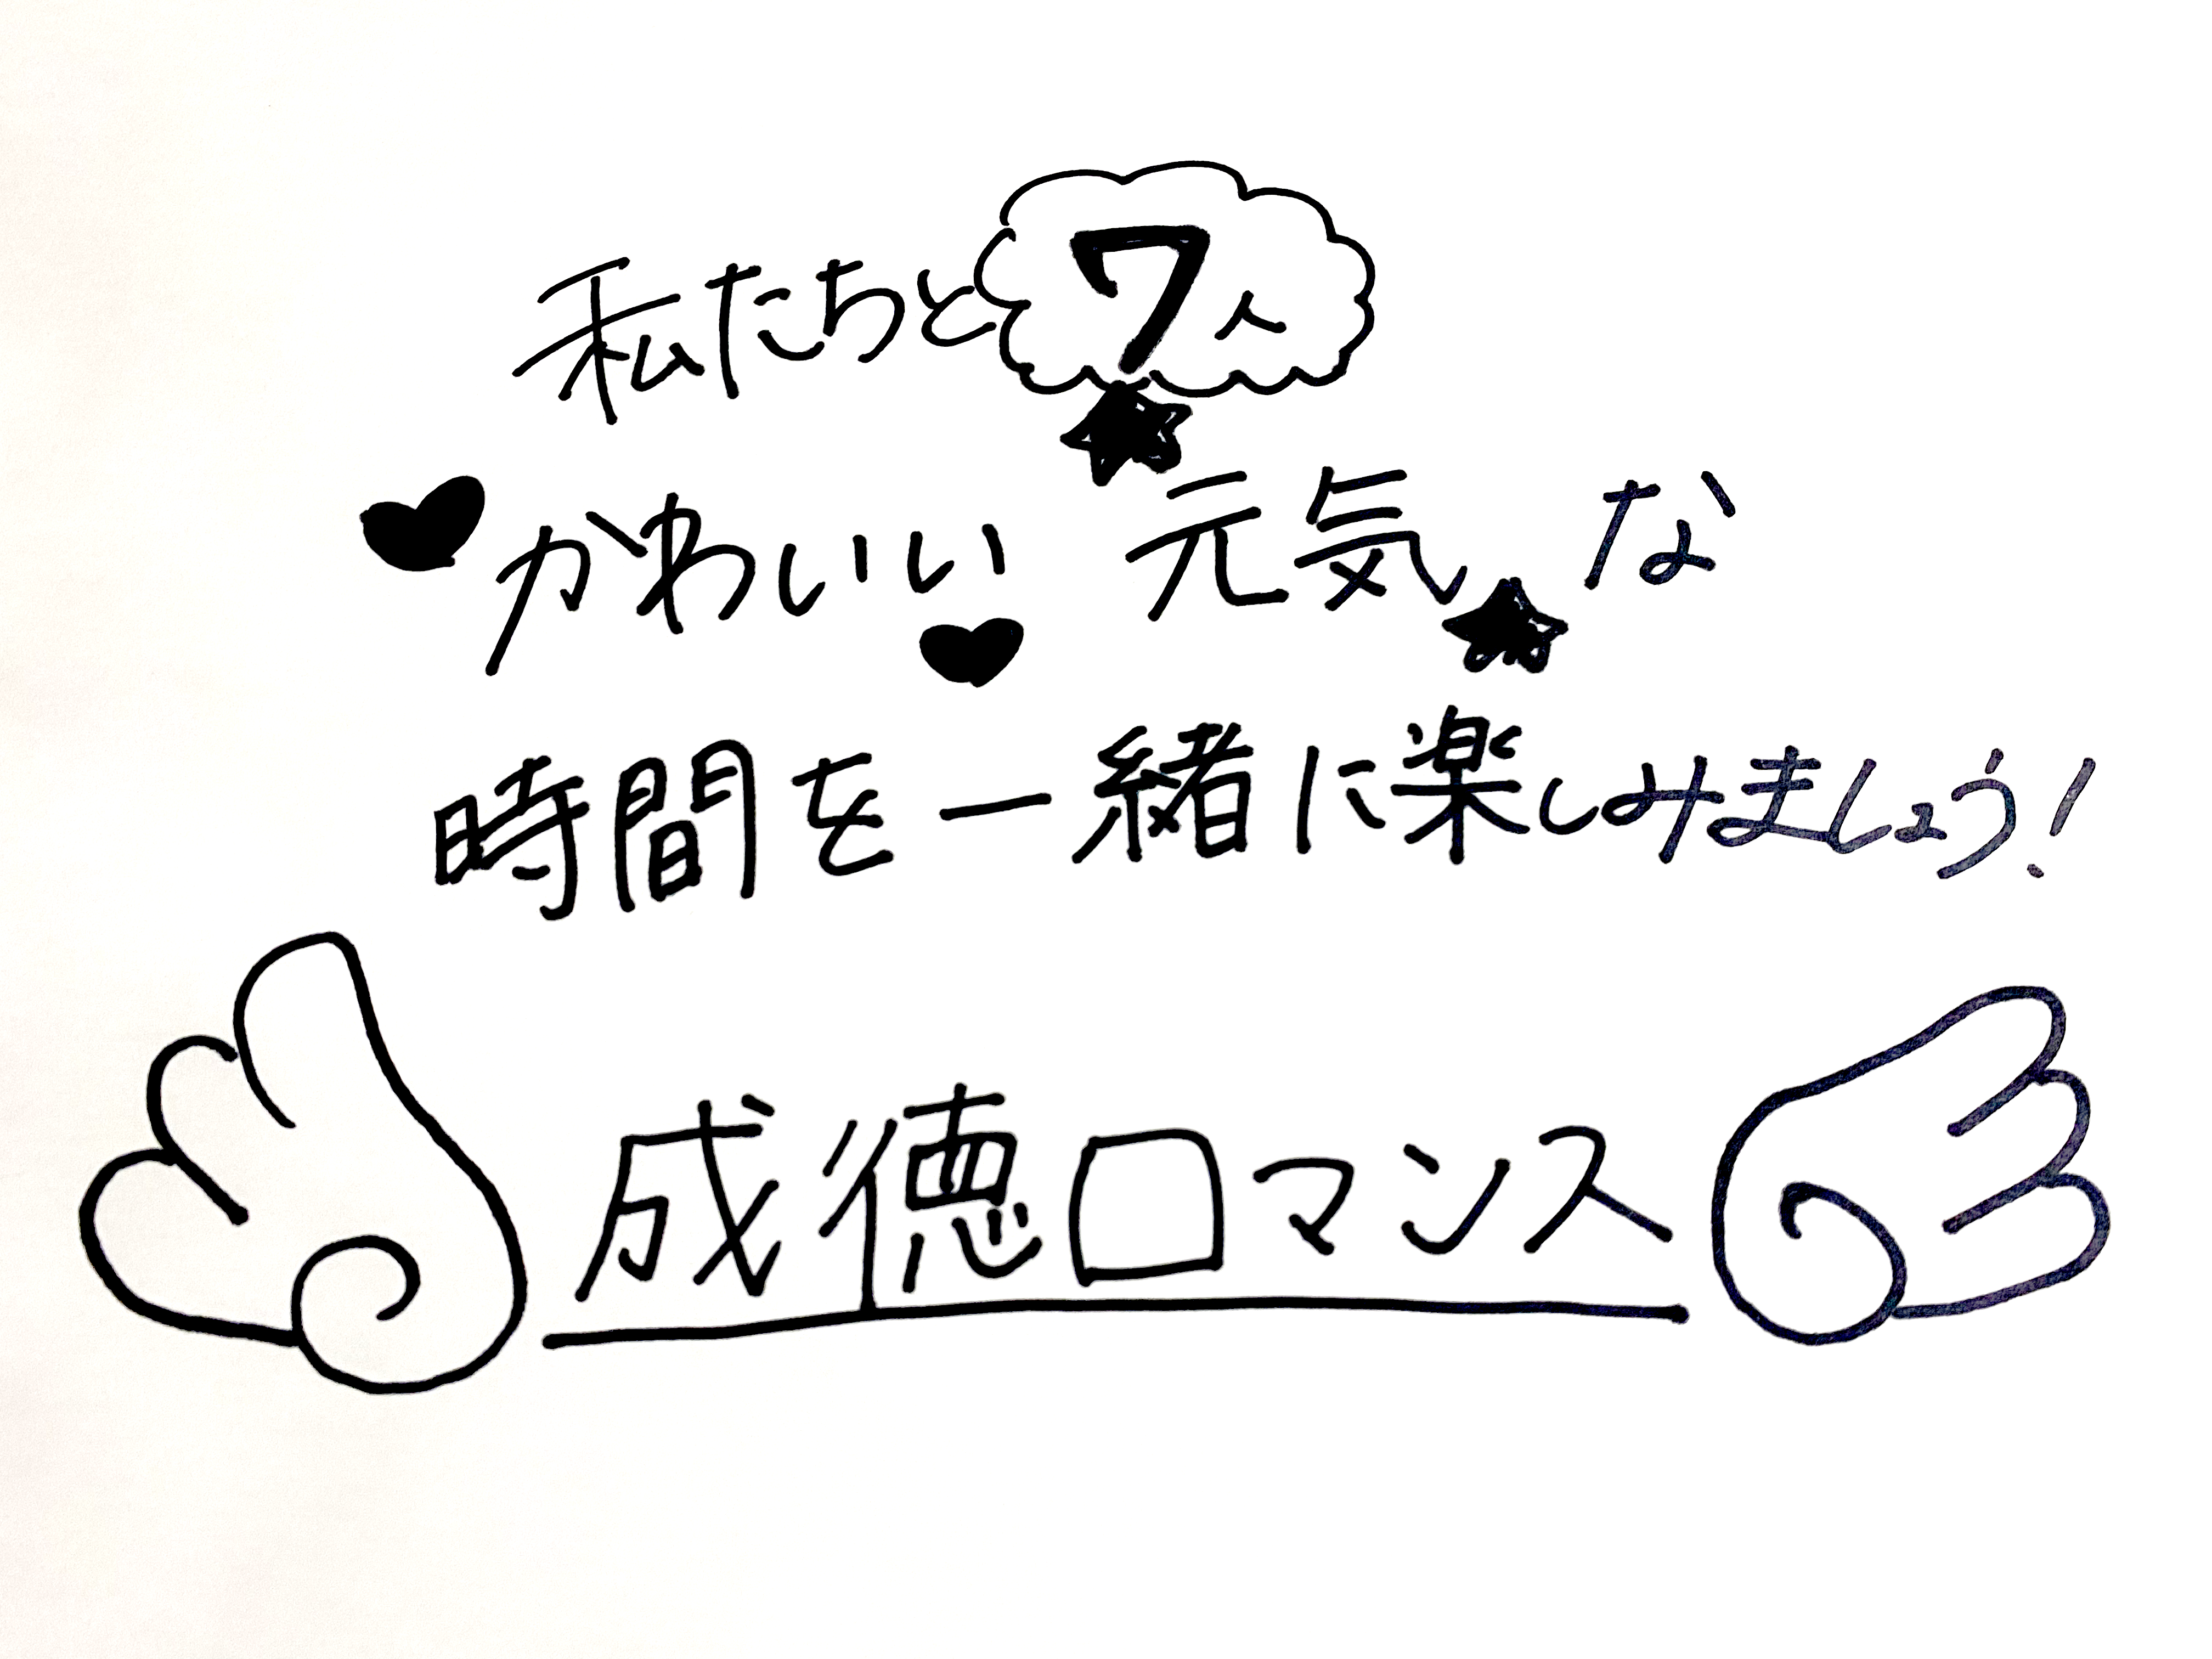 私たちと7人
かわいい 元気な
時間を一緒に楽しみましょう!
成徳ロマンス